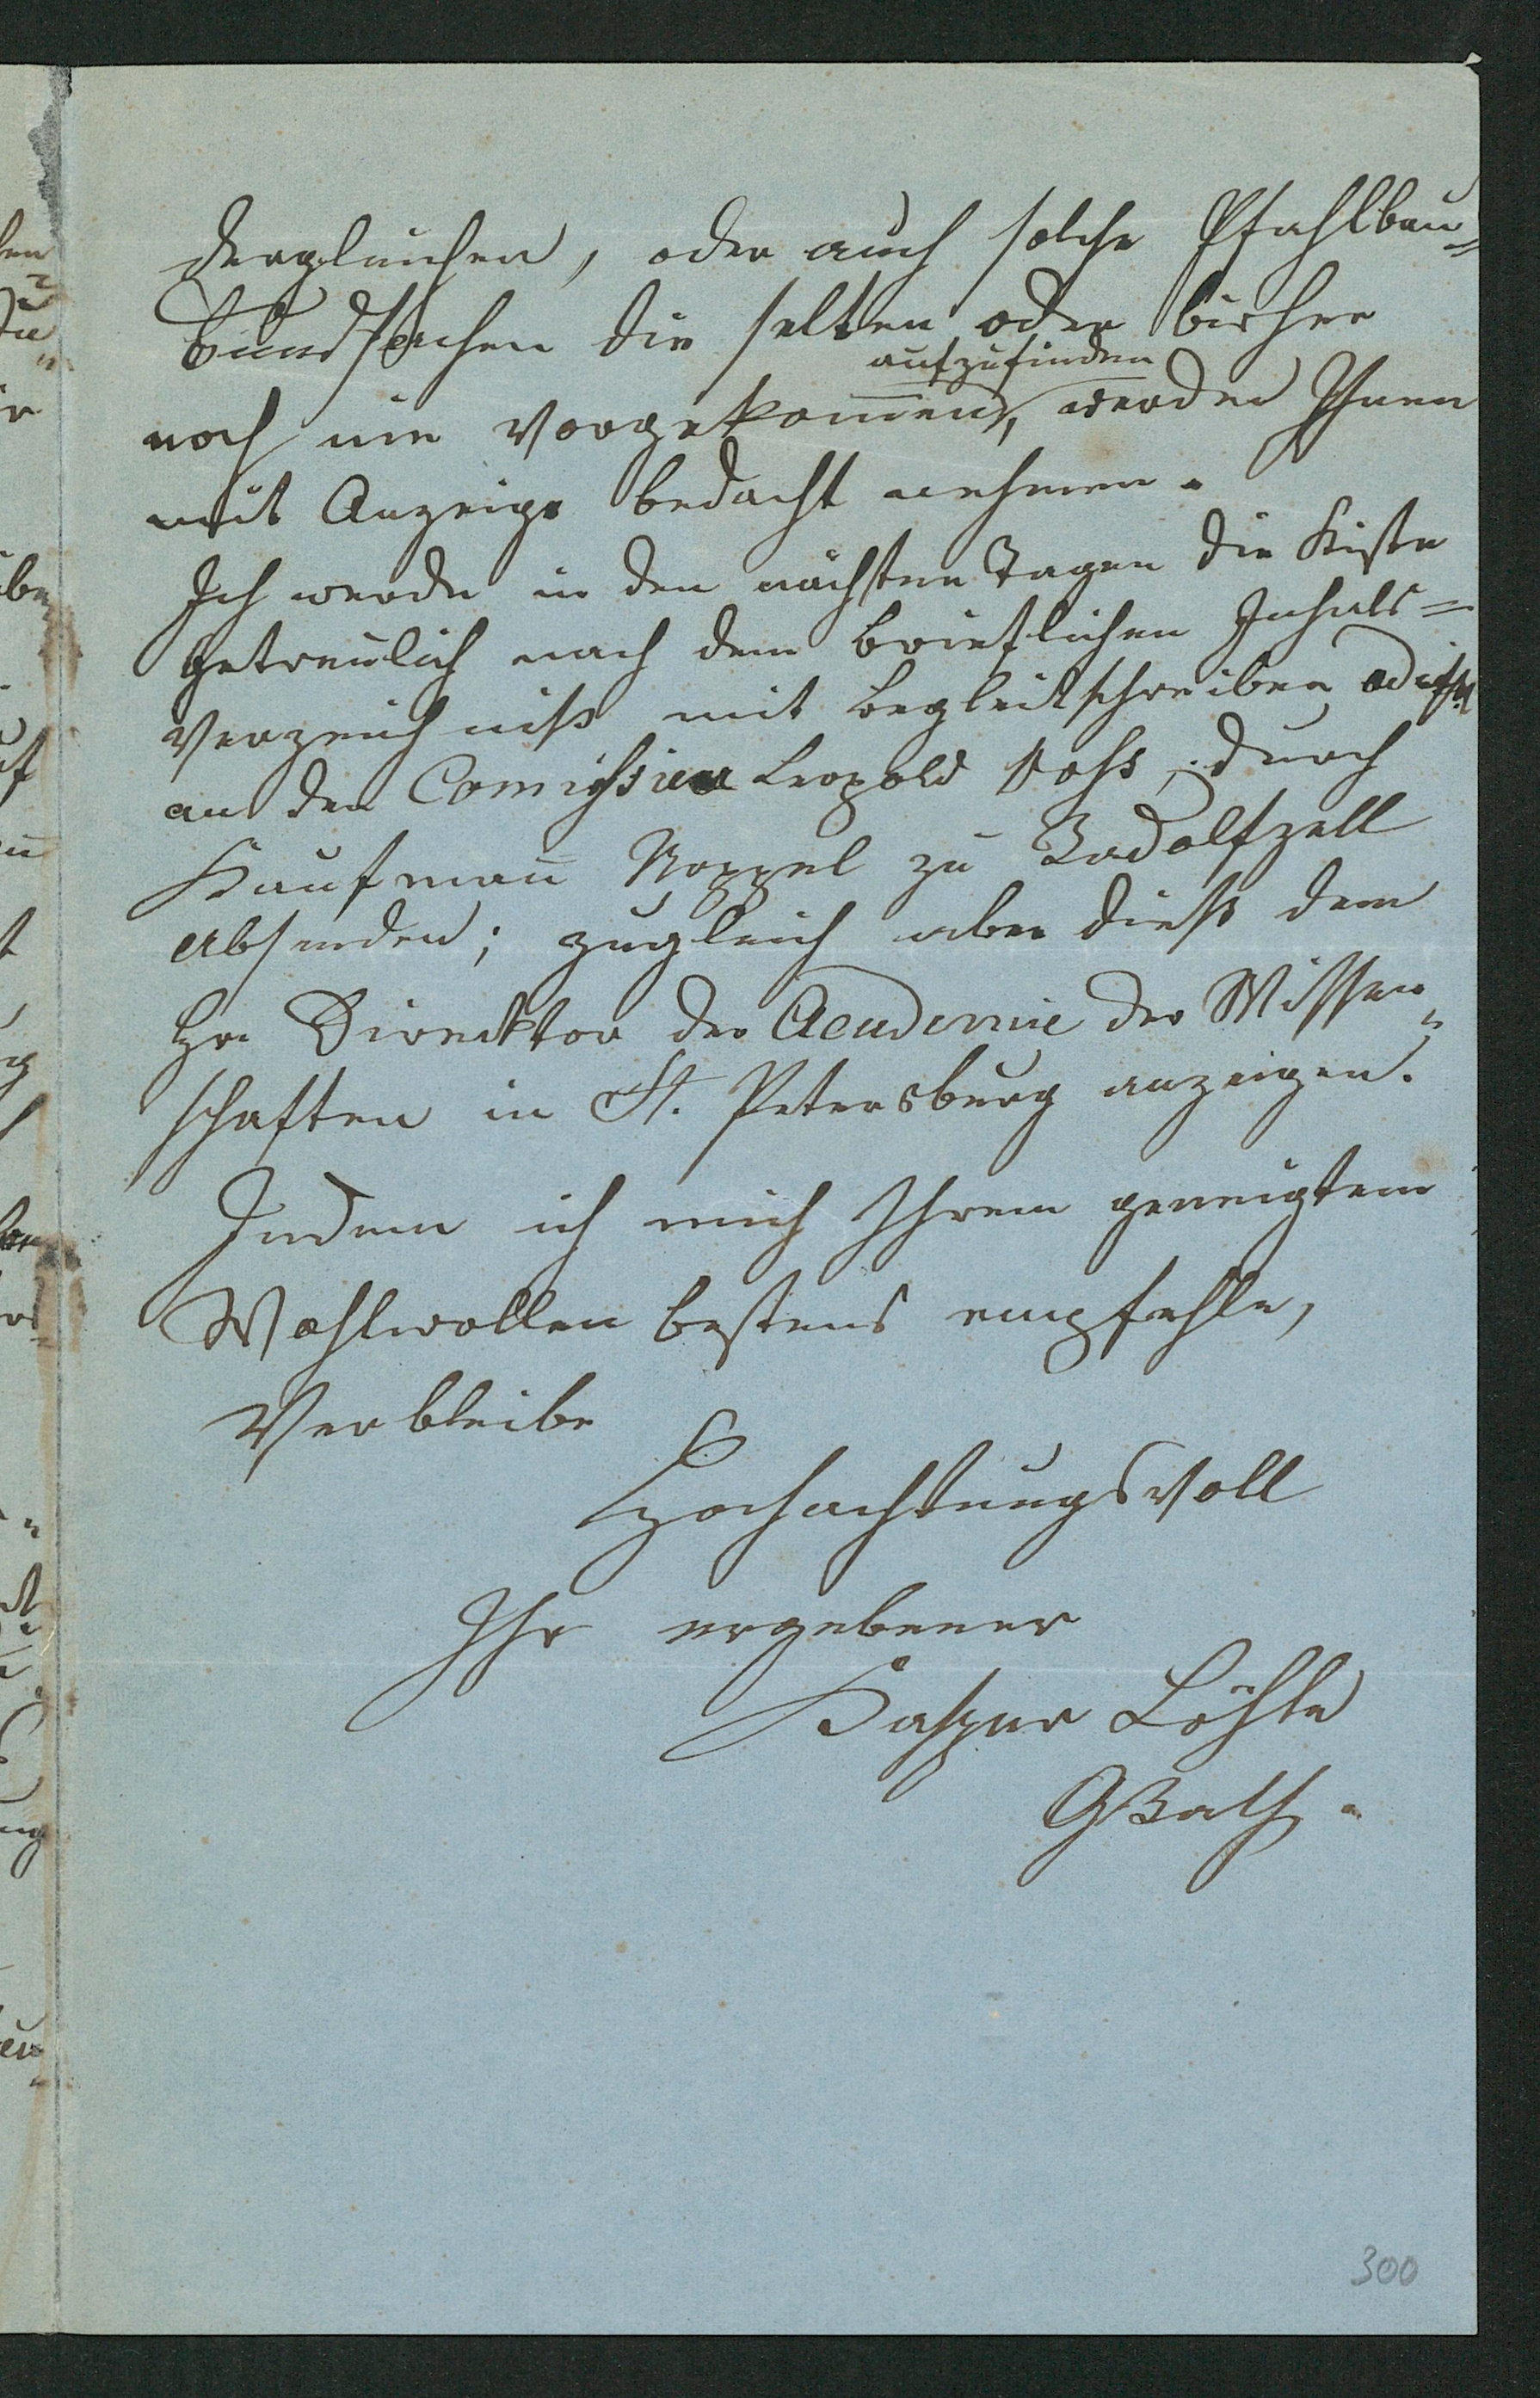 dergleichen, oder auch solche Pfahlbau-
Fundsachen die selten oder bisher
aufzufinden
noch nie vorgekom̅en, werden Ihnen
mit Anzeige bedacht nehmen.
Ich werde in den nächsten Tagen die Kiste
getreulich nach dem brieflichen Inhals=
verzeichniß mit Begleitschreiben
an den Leopold Voß, durch
Kaufman̅ Noppel zu Radolfzell
absenden; zugleich aber dieß dem
Hr. Direcktor der Academie der Wissen-
schaften in St. Petersburg anzeigen.
Indem ich mich Ihrem geneigtem
Wohlwollen bestens empfehle,
Verbleibe
Hochachtungsvoll
Ihr ergebener
Kaspar Löhle
GRath.
300